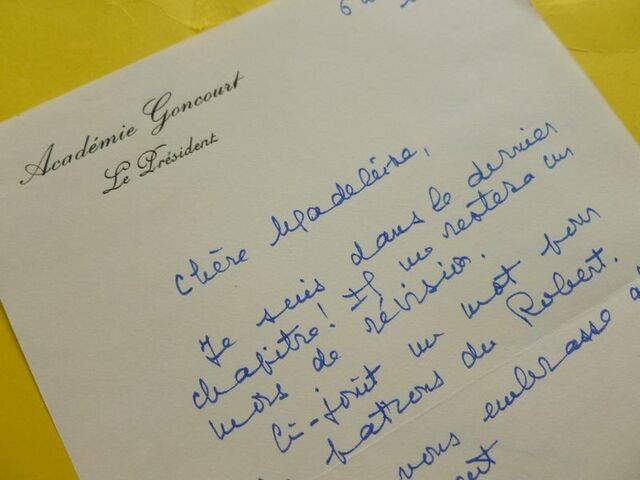 Académie Goncourt
Le Président
Chère Madeleine,
Je suis dans le dernier
chapitre! Il me restera un
mois de révision.
Ci-joint un mot pour
patrons du Robert.
vous embrasse